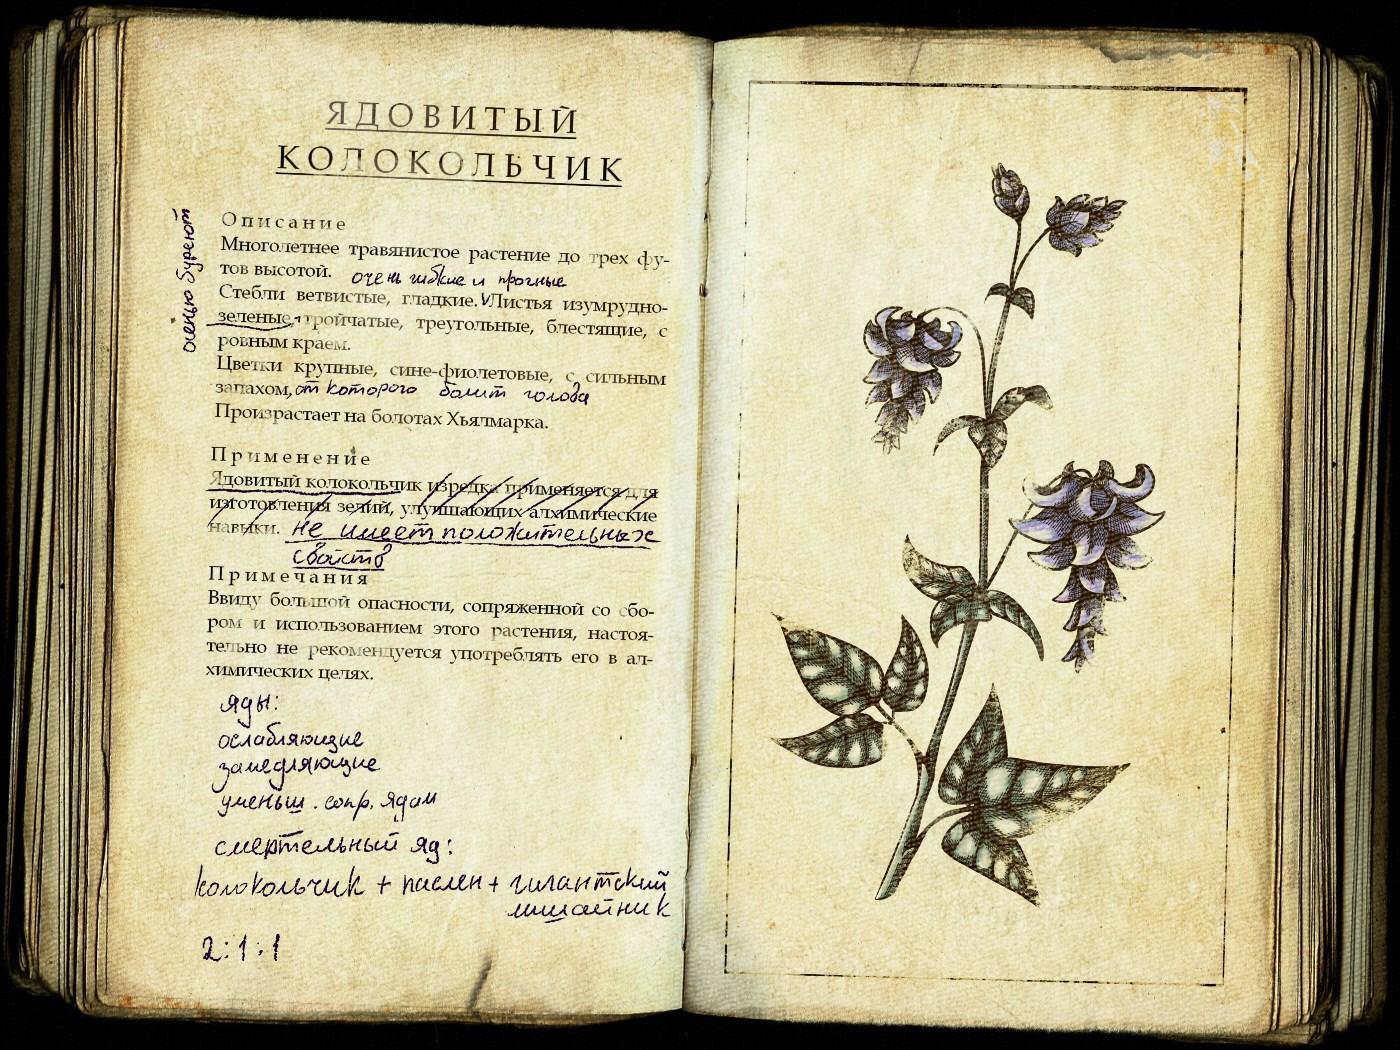 ЯДОВИТЫЙ
КОЛОКОЛЬЧИК
осенью буреют
Описание
Многолетнее травянистое растение до трех фу-
тов высотой.
очень гибкие и прочные
Стебли ветвистые, гладкие. VЛистья изумрудно-
зеленые, тройчатые, треугольные, блестящие, с
ровным краем.
Цветки крупные, сине-фиолетовые, с сильным
запахом, от которого болит голова
Произрастает на болотах Хьялмарка.
Применение
Ядовитый колокольчик изредка применяется для
изготовления зелий, улучшающих алхимические
навыки. не имеет положительных
свойств
Примечания
Ввиду большой опасности, сопряженной со сбо-
ром и использованием этого растения, настоя-
тельно не рекомендуется употреблять его в ал-
химических целях.
яды:
ослабляющие
замедляющие
уменьш. сопр. ядам
смертельный яд:
колокольчик + паслен + гигантский
лишайник
2:1:1